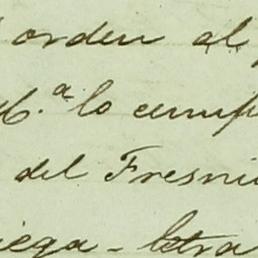 orden al
M.ª lo cump
del Fresni
iega - letra